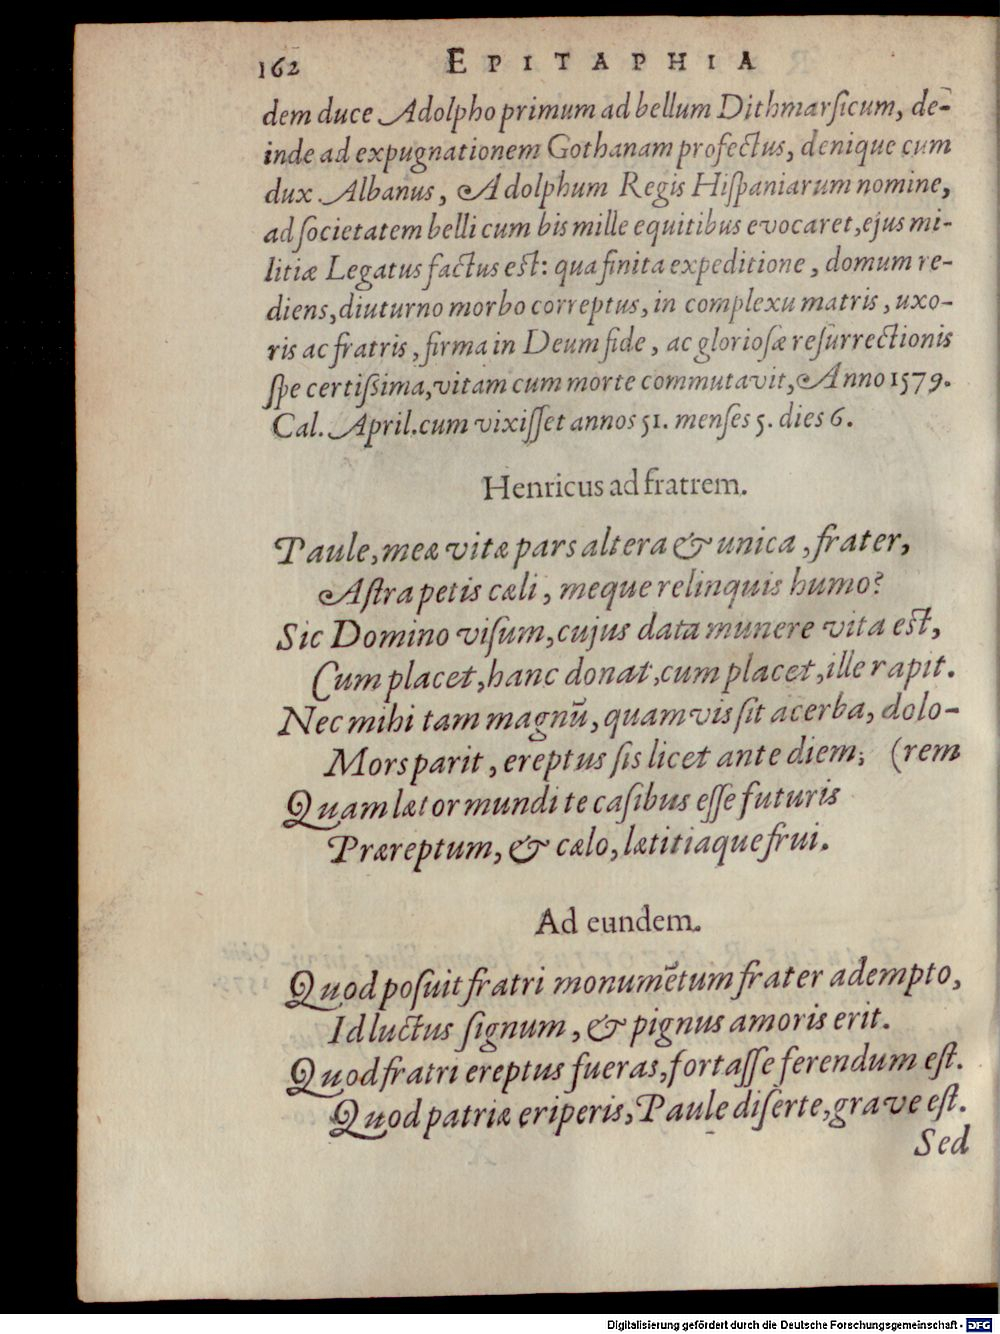 162 EPITAPHIA
dem duce Adolpho primum ad bellum Dithmarsicum, de-
inde ad expugnationem Gothanam profectus, denique cum
dux Albanus, Adolphum Regis Hispaniarum nomine,
ad societatem belli cum bis mille equitibus evocaret, ejus mi-
litiæ Legatus factus est: qua finita expeditione, domum re-
diens, diuturno morbo correptus, in complexu matris, uxo-
ris ac fratris, firma in Deum fide, ac gloriosæ resurrectionis
spe certissima, vitam cum morte commutavit, Anno 1579.
Cal. April. cum vixisset annos 51. menses 5. dies 6.
Henricus ad fratrem.
Paule, meæ vitæ pars altera & unica, frater,
Astra petis cæli, meque relinquis humo?
Sic Domino visum, cujus data munere vita est,
Cum placet, hanc donat, cum placet, ille rapit.
Nec mihi tam magnū, quamvis sit acerba, dolo-
Mors parit, ereptus sis licet ante diem; (rem
Quam lætor mundi te casibus esse futuris
Præreptum, & cælo, lætitiaque frui.
Ad eundem.
Quod posuit fratri monumētum frater adempto,
Id luctus signum, & pignus amoris erit.
Quod fratri ereptus fueras, fortasse ferendum est.
Quod patriæ eriperis, Paule diserte, grave est.
Sed
Digitalisierung gefördert durch die Deutsche Forschungsgemeinschaft - DFG